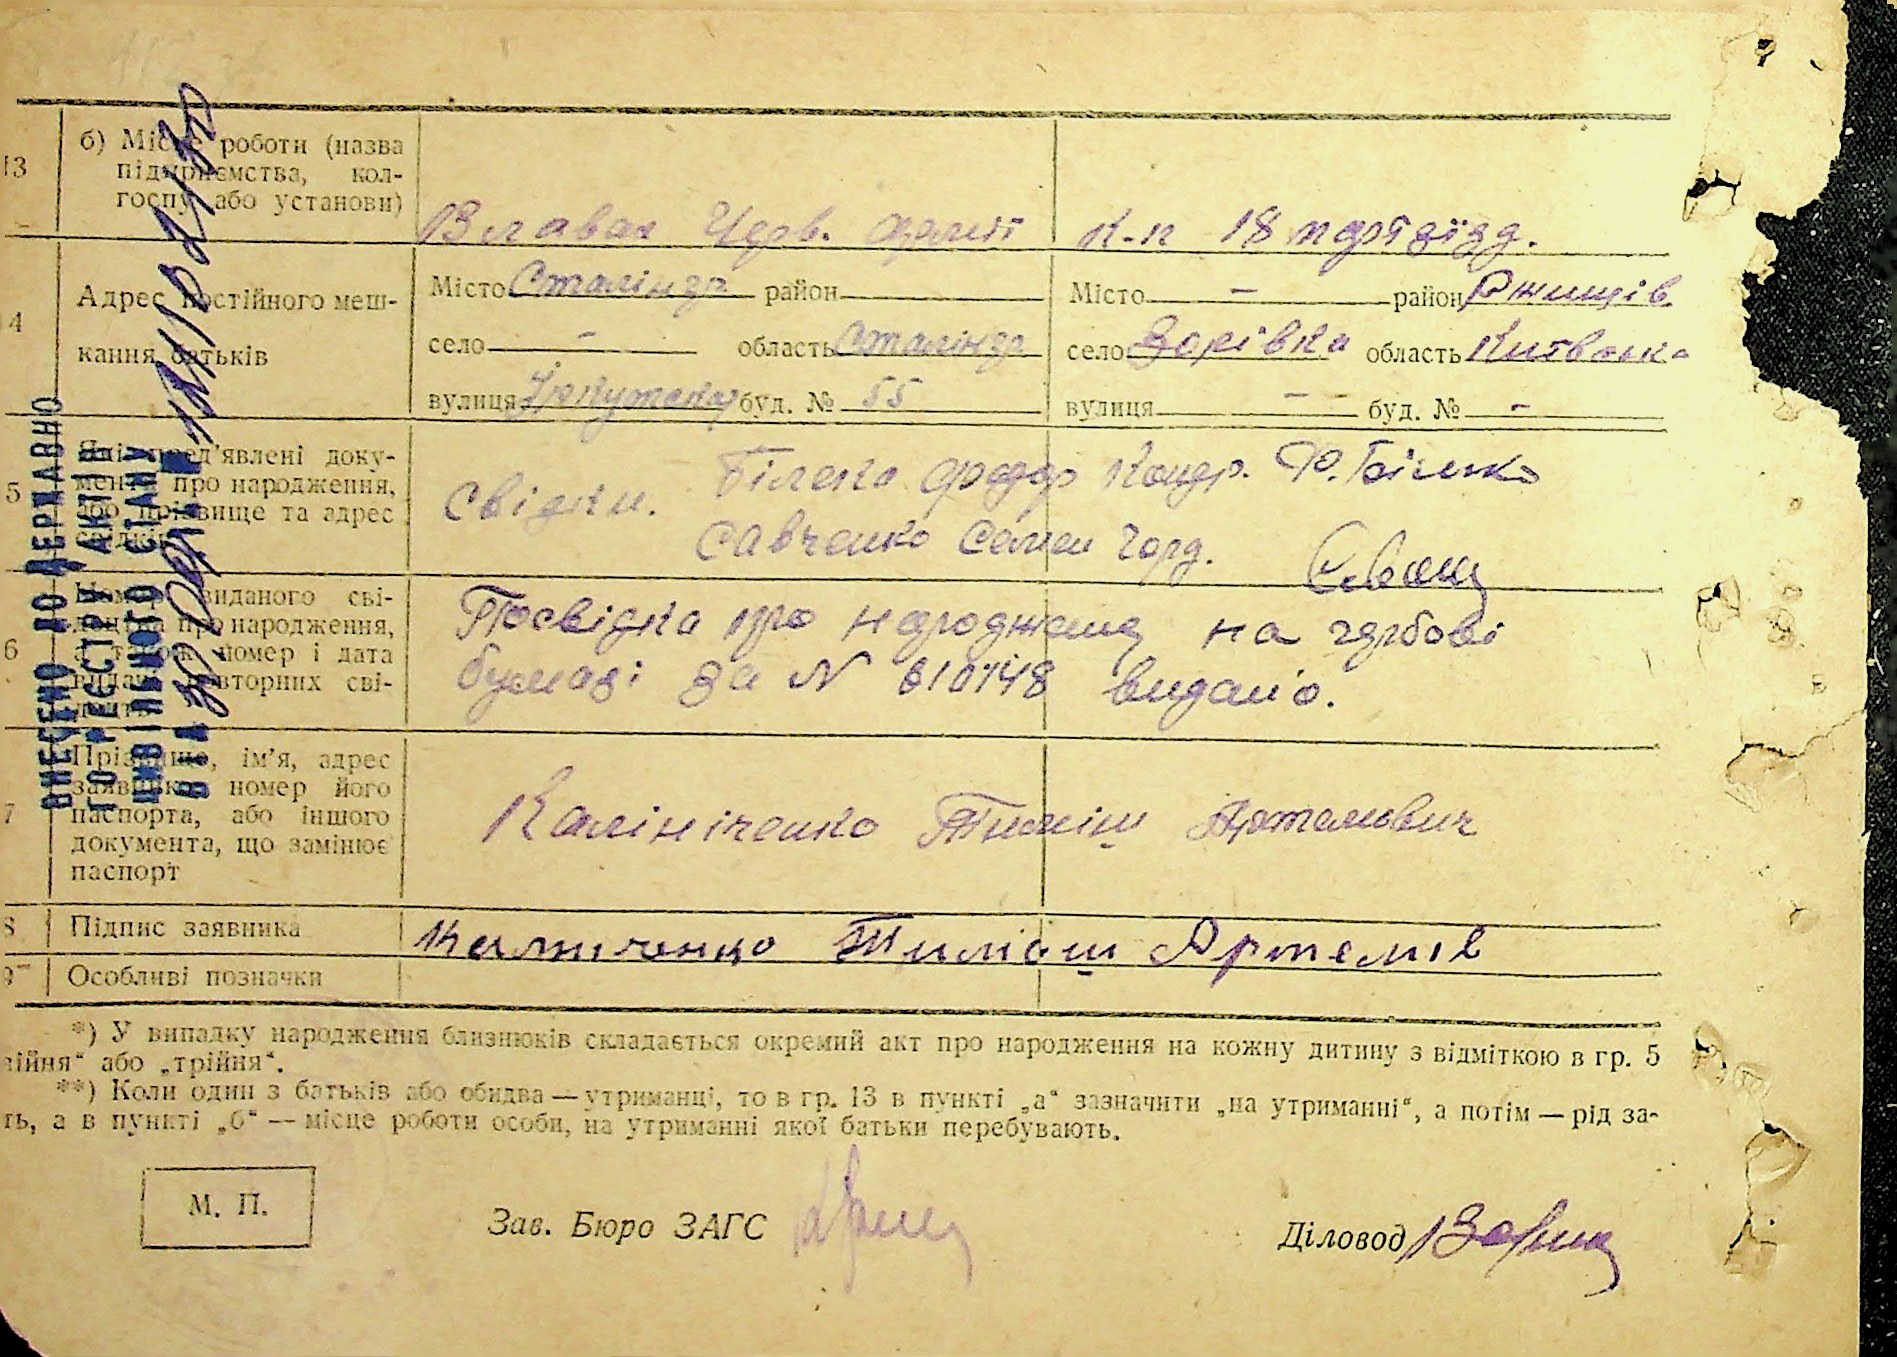 13 б) Місце роботи (назва підприємства, колгоспу або установи)
В лавах Черв. армії
К-п 18 партзїзд.
4 Адрес постійного мешкання батьків
Місто Сталіндр район
село - область Сталіндр
вулиця буд. № 55
Місто - район Ржищів
село Зорівка область Київська
вулиця - буд. № -
5 Які пред'явлені документи про народження, або прізвище та адрес свідків
Свідки. Біленко Федор Кондр. Ф. Біленко
Савченко Семен Горд.
6 Номер виданого свідоцтва про народження, а також номер і дата видачі повторних свідоцтв
Посвідка про народження на гербові
бумазі за N 810148 видано.
7 Прізвище, ім'я, адрес заявника, номер його паспорта, або іншого документа, що замінює паспорт
Калініченко Тиміш Артемович
8 Підпис заявника
Калініченко Тиміош Артемів
9 Особливі позначки
*) У випадку народження близнюків складається окремий акт про народження на кожну дитину з відміткою в гр. 5
війня“ або „трійня“.
**) Коли один з батьків або обидва — утриманці, то в гр. 13 в пункті „а“ зазначити „на утриманні“, а потім — рід за-
ть, а в пункті „б“ — місце роботи особи, на утриманні якої батьки перебувають.
М. П.
Зав. Бюро ЗАГС
Діловод
ВНЕСЕНО ДО ДЕРЖАВНО
ГО РЕЄСТРУ АКТІВ
ЦИВІЛЬНОГО СТАНУ